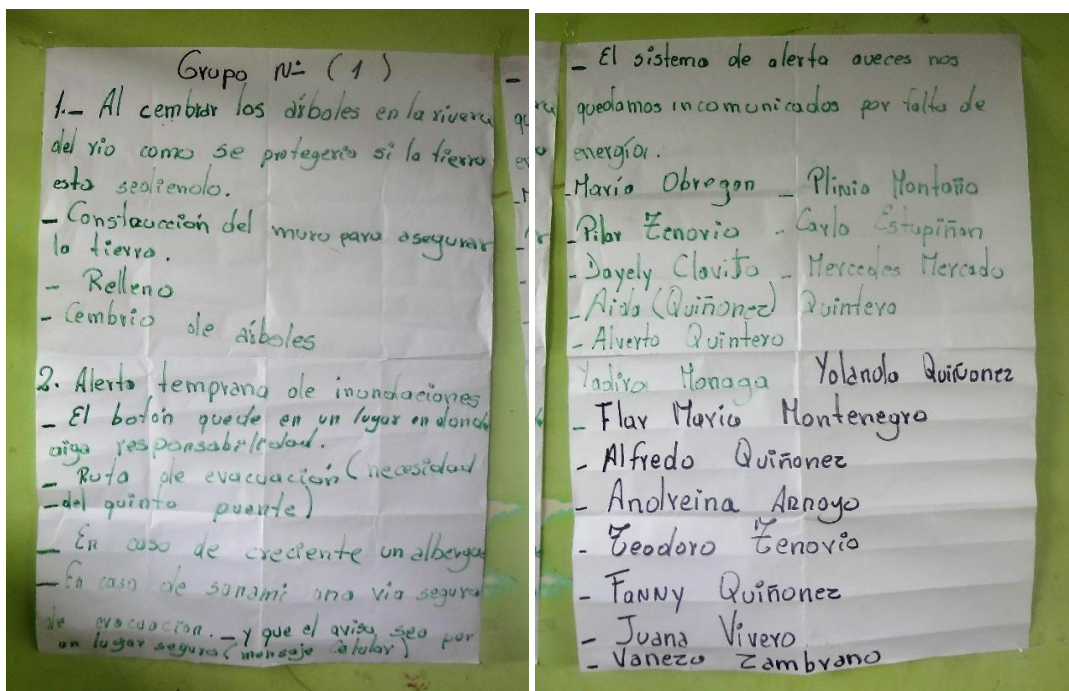 Grupo Nº (1)
1.- Al cembrar los árboles en la rivera
del rio como se protegeria si la tierra
esta sediendo.
- Construcción del muro para asegurar
la tierra.
- Relleno
- Cembrio de árboles
2. Alerta temprana de inundaciones
- El botón quede en un lugar en donde
aiga responsabilidad.
- Ruta de evacuación (necesidad
- del quinto puente)
- En caso de creciente un albergue
- En caso de sunami una via segura
de evacuacion. - y que el aviso sea por
un lugar seguro (mensaje celular)
- El sistema de alerta aveces nos
quedamos incomunicados por falta de
energía.
- María Obregon - Plinio Montaño
- Pilar Tenorio - Carla Estupiñan
- Dayely Clavijo - Mercedes Mercado
- Aida (Quiñonez) Quintero
- Alverto Quintero
Yadira Monaga Yolanda Quiñonez
- Flar Maria Montenegro
- Alfredo Quiñonez
- Andreina Arroyo
- Teodoro Tenorio
- Fanny Quiñonez
- Juana Vivero
- Vaneza Zambrano